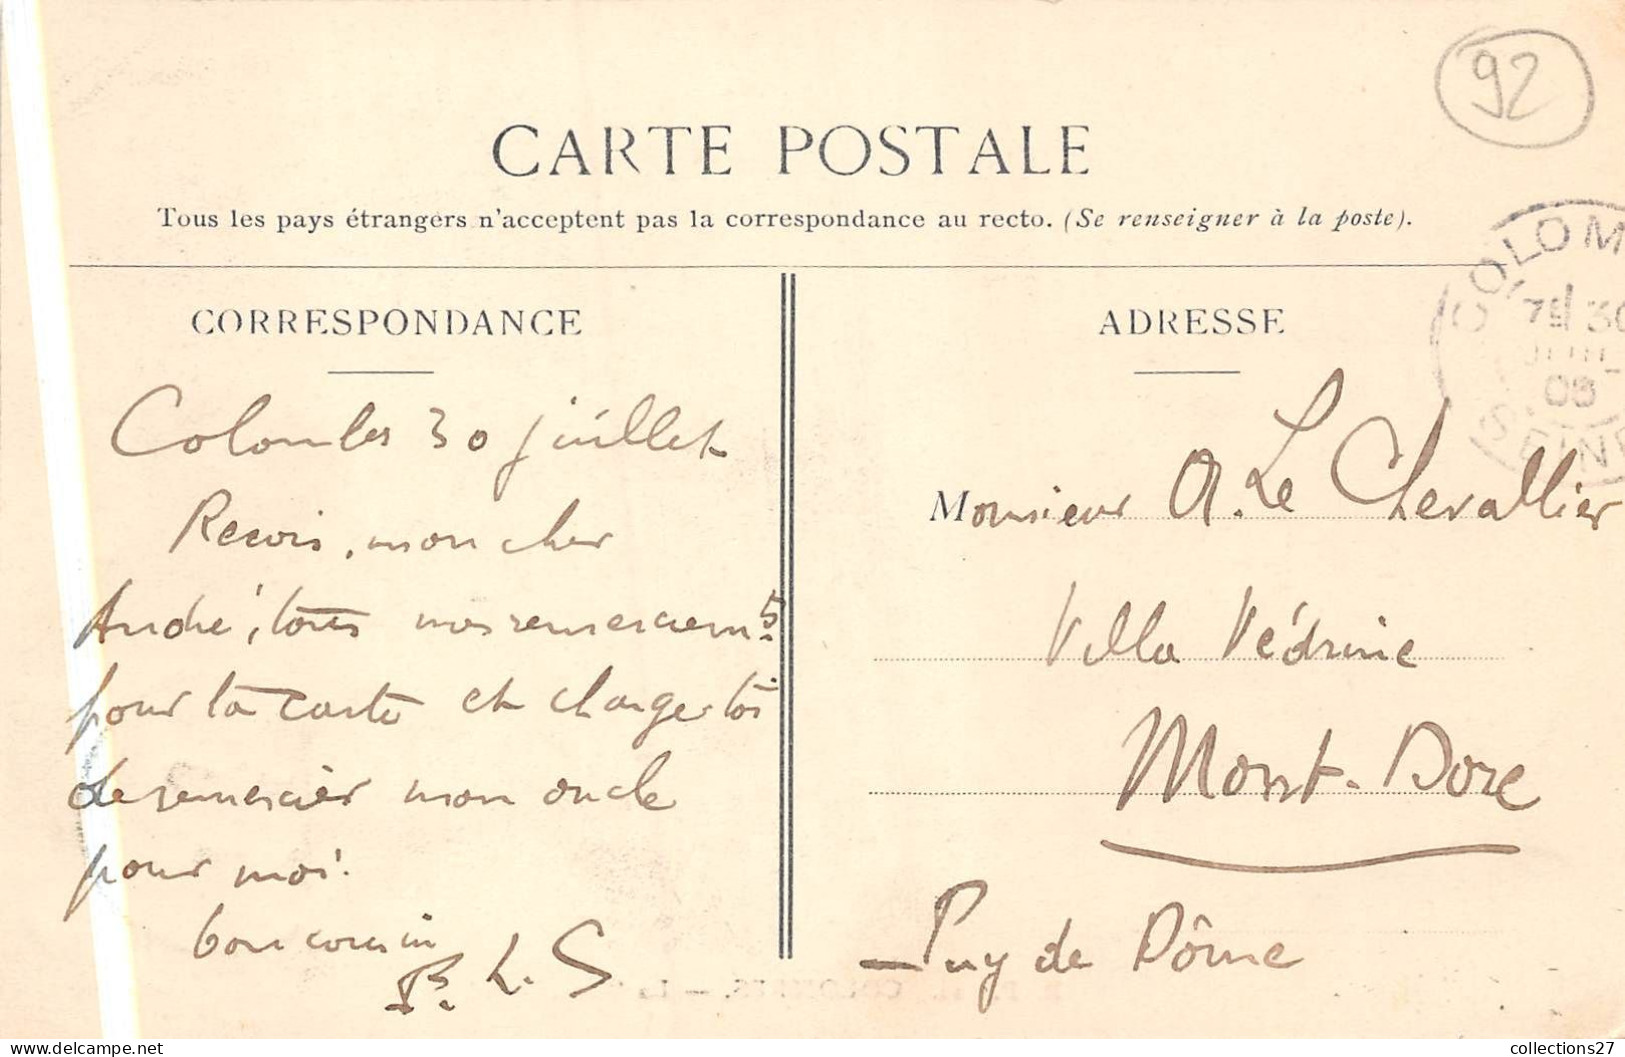 92
CARTE POSTALE
Tous les pays étrangers n'acceptent pas la correspondance au recto. (Se renseigner à la poste).
CORRESPONDANCE
Colombes 30 juillet
Recois, mon cher
André, tous nos remerciem.ts
pour ta carte et charge-toi
de remercier mon oncle
pour moi.
Ton cousin
P. L. S
ADRESSE
COLOM
7E 30
JUIL
08
SEINE
Monsieur A. Le Chevallier
Villa Védrine
Mont-Dore
Puy de Dôme
COLOMBES. — La
collections27